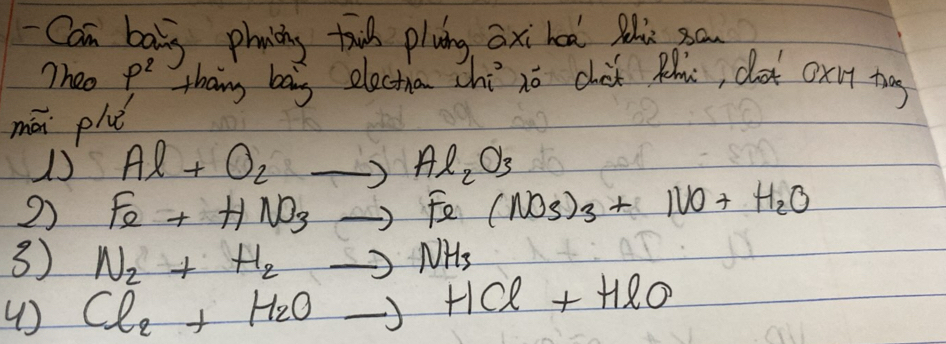 - Cân bằng phương trình p/ứng ôxi hoá khử sau
Theo P² thăng bằng electron chỉ rõ chất khử, chất OXH trong
mỗi p/ư
1) Al + O₂ → Al₂O₃
2) Fe + HNO₃ → Fe(NO₃)₃ + NO + H₂O
3) N₂ + H₂ → NH₃
4) Cl₂ + H₂O → HCl + HlO